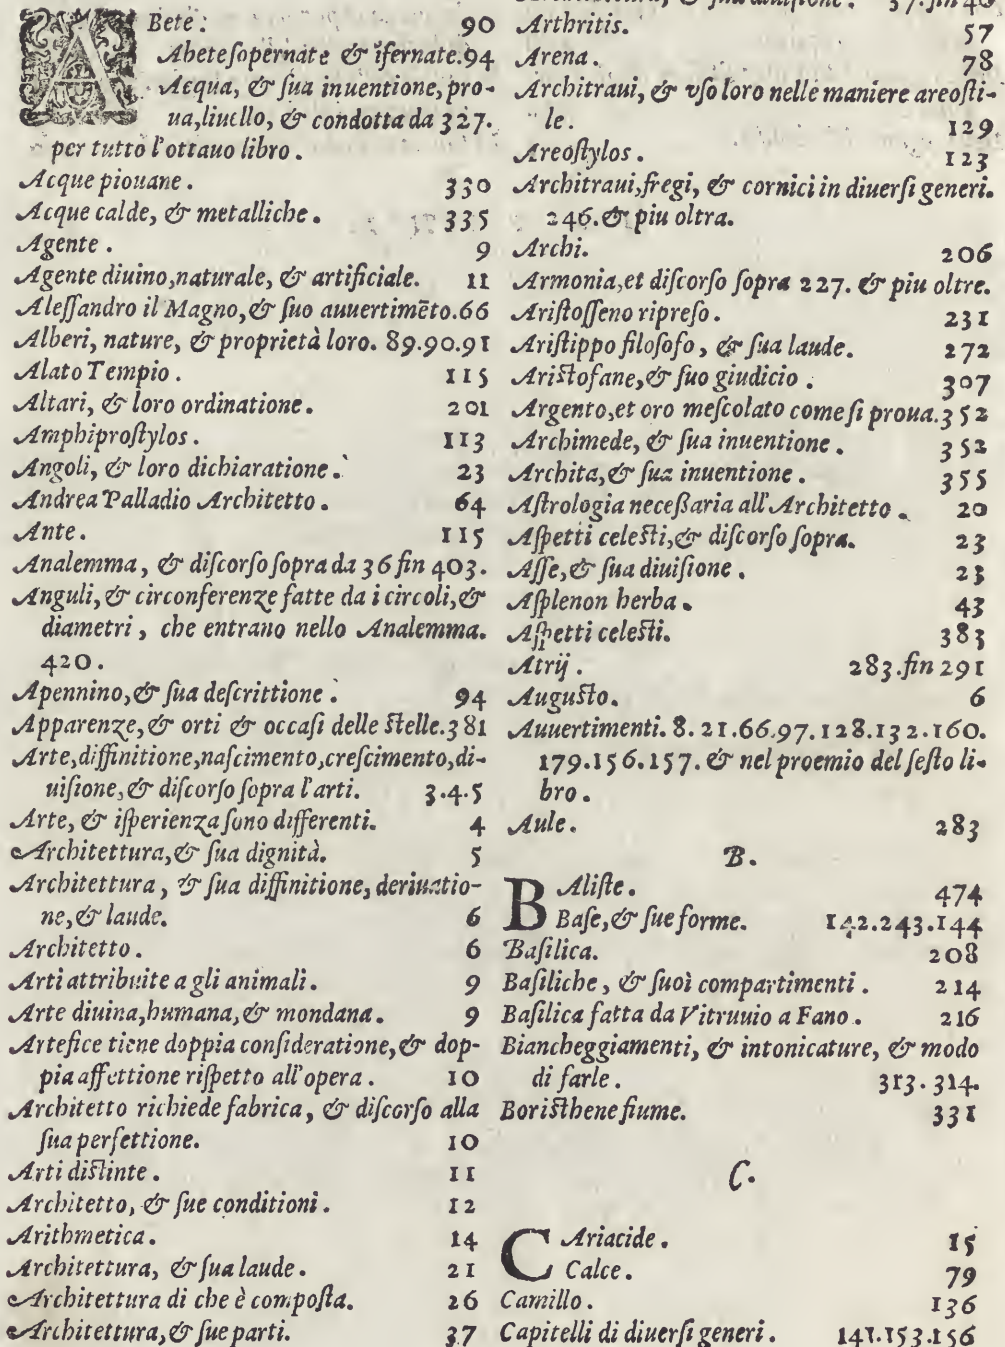 ABete. 90
Abete sopernate & ifernate. 94
Acqua, & sua inuentione, pro-
ua, liuello, & condotta da 327.
per tutto l'ottauo libro.
Acque piouane. 330
Acque calde, & metalliche. 335
Agente. 9
Agente diuino, naturale, & artificiale. 11
Alessandro il Magno, & suo auuertimēto. 66
Alberi, nature, & proprietà loro. 89.90.91
Alato Tempio. 115
Altari, & loro ordinatione. 201
Amphiprostylos. 113
Angoli, & loro dichiaratione. 23
Andrea Palladio Architetto. 64
Ante. 115
Analemma, & discorso sopra da 36 fin 403.
Anguli, & circonferenze fatte da i circoli, &
diametri, che entrano nello Analemma.
420.
Apennino, & sua descrittione. 94
Apparenze, & orti & occasi delle stelle. 381
Arte, diffinitione, nascimento, crescimento, di-
uisione, & discorso sopra l'arti. 3.4.5
Arte, & isperienza sono differenti. 4
Architettura, & sua dignità. 5
Architettura, & sua diffinitione, deriuatio-
ne, & laude. 6
Architetto. 6
Arti attribuite a gli animali. 9
Arte diuina, humana, & mondana. 9
Artefice tiene doppia consideratione, & dop-
pia affettione rispetto all'opera. 10
Architetto richiede fabrica, & discorso alla
sua perfettione. 10
Arti distinte. 11
Architetto, & sue conditioni. 12
Arithmetica. 14
Architettura, & sua laude. 21
Architettura di che è composta. 26
Architettura, & sue parti. 37
37. fin 40
Arthritis. 57
Arena. 78
Architraui, & vso loro nelle maniere areosti-
le. 129
Areostylos. 123
Architraui, fregi, & cornici in diuersi generi.
246. & piu oltra.
Archi. 206
Armonia, et discorso sopra 227. & piu oltre.
Aristosseno ripreso. 231
Aristippo filosofo, & sua laude. 272
Aristofane, & suo giudicio. 307
Argento, et oro mescolato come si proua. 352
Archimede, & sua inuentione. 352
Archita, & sua inuentione. 355
Astrologia necessaria all'Architetto. 20
Aspetti celesti, & discorso sopra. 23
Asse, & sua diuisione. 23
Asplenon herba. 43
Aspetti celesti. 383
Atrij. 283. fin 291
Augusto. 6
Auuertimenti. 8.21.66.97.128.132.160.
179.156.157. & nel proemio del sesto li-
bro.
Aule. 283
B.
BAliste. 474
Base, & sue forme. 142.243.144
Basilica. 208
Basiliche, & suoi compartimenti. 214
Basilica fatta da Vitruuio a Fano. 216
Biancheggiamenti, & intonicature, & modo
di farle. 313.314.
Boristhene fiume. 331
C.
CAriacide. 15
Calce. 79
Camillo. 136
Capitelli di diuersi generi. 141.153.156